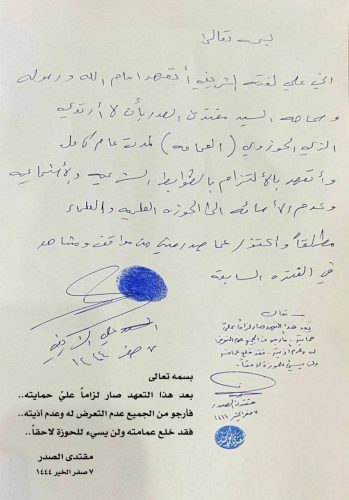 بسمه تعالى
اني علي لفته الشريفي أتعهد امام الله ورسوله
وسماحة السيد مقتدى الصدر بأن لا أرتدي
الزي الحوزوي (العمامه) لمدة عام كامل
وأتعهد بالألتزام بالضوابط الشرعيه والأجتماعيه
وعدم الأسائه الى الحوزه العلميه والعلماء
مطلقاً وأعتذر عما صدر مني من مواقف ومشاهد
في الفتره السابقة
السيد علي الشريفي
٧ صفر ١٤٤٤
بسمه تعالى
بعد هذا التعهد صار لزاماً عليّ
حمايته.. فأرجو من الجميع عدم التعرض
له وعدم أذيته.. فقد خلع عمامته
ولن يسيء للحوزة لاحقاً..
مقتدى الصدر
٧ صفر الخير ١٤٤٤
بسمه تعالى
بعد هذا التعهد صار لزاماً عليّ حمايته..
فأرجو من الجميع عدم التعرض له وعدم أذيته..
فقد خلع عمامته ولن يسيء للحوزة لاحقاً..
مقتدى الصدر
٧ صفر الخير ١٤٤٤